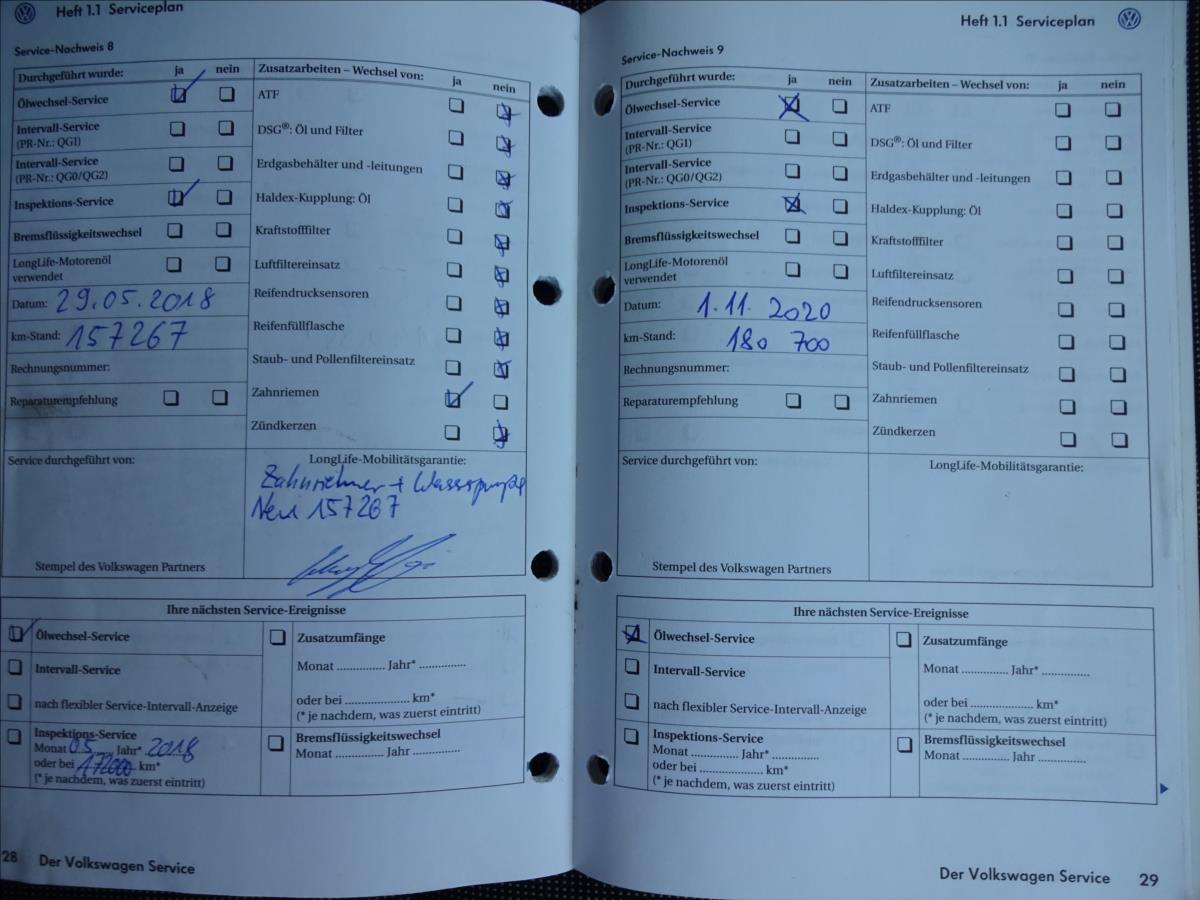 Heft 1.1 Serviceplan
Service-Nachweis 8
Durchgeführt wurde: ja nein
Ölwechsel-Service
Intervall-Service
(PR-Nr.: QG1)
Intervall-Service
(PR-Nr.: QG0/QG2)
Inspektions-Service
Bremsflüssigkeitswechsel
LongLife-Motorenöl
verwendet
Datum: 29.05.2018
km-Stand: 157267
Rechnungsnummer:
Reparaturempfehlung
Zusatzarbeiten – Wechsel von: ja nein
ATF
DSG®: Öl und Filter
Erdgasbehälter und -leitungen
Haldex-Kupplung: Öl
Kraftstofffilter
Luftfiltereinsatz
Reifendrucksensoren
Reifenfüllflasche
Staub- und Pollenfiltereinsatz
Zahnriemen
Zündkerzen
Service durchgeführt von:
Stempel des Volkswagen Partners
LongLife-Mobilitätsgarantie:
+ Wasserpumpe
Neu 157267
Ihre nächsten Service-Ereignisse
Ölwechsel-Service
Intervall-Service
nach flexibler Service-Intervall-Anzeige
Inspektions-Service
Monat 05 Jahr* 2018
oder bei 172000 km*
(* je nachdem, was zuerst eintritt)
Zusatzumfänge
Monat ............... Jahr* ...............
oder bei .................... km*
(* je nachdem, was zuerst eintritt)
Bremsflüssigkeitswechsel
Monat ............... Jahr ...............
28 Der Volkswagen Service
Heft 1.1 Serviceplan
Service-Nachweis 9
Durchgeführt wurde: ja nein
Ölwechsel-Service
Intervall-Service
(PR-Nr.: QG1)
Intervall-Service
(PR-Nr.: QG0/QG2)
Inspektions-Service
Bremsflüssigkeitswechsel
LongLife-Motorenöl
verwendet
Datum: 1.11. 2020
km-Stand: 180 700
Rechnungsnummer:
Reparaturempfehlung
Zusatzarbeiten – Wechsel von: ja nein
ATF
DSG®: Öl und Filter
Erdgasbehälter und -leitungen
Haldex-Kupplung: Öl
Kraftstofffilter
Luftfiltereinsatz
Reifendrucksensoren
Reifenfüllflasche
Staub- und Pollenfiltereinsatz
Zahnriemen
Zündkerzen
Service durchgeführt von:
Stempel des Volkswagen Partners
LongLife-Mobilitätsgarantie:
Ihre nächsten Service-Ereignisse
Ölwechsel-Service
Intervall-Service
nach flexibler Service-Intervall-Anzeige
Inspektions-Service
Monat ............... Jahr* ...............
oder bei .................... km*
(* je nachdem, was zuerst eintritt)
Zusatzumfänge
Monat ............... Jahr* ...............
oder bei .................... km*
(* je nachdem, was zuerst eintritt)
Bremsflüssigkeitswechsel
Monat ............... Jahr ...............
Der Volkswagen Service 29